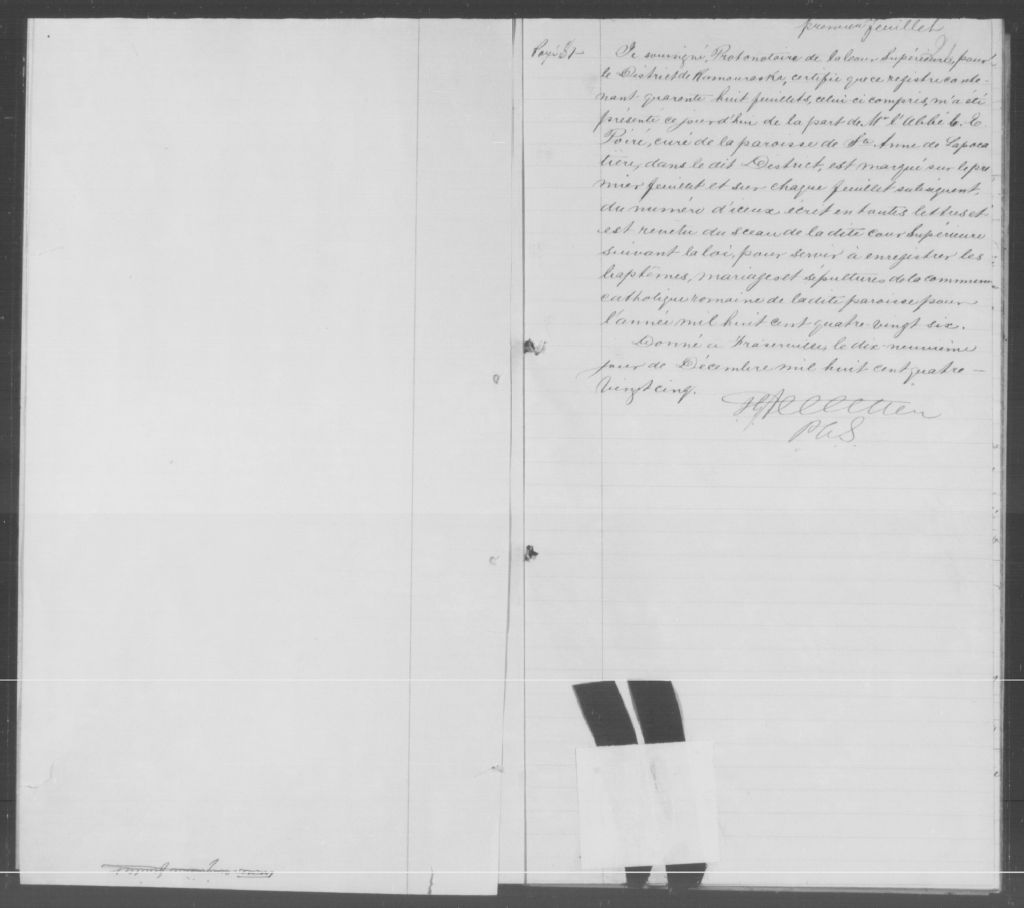 premier feuillet
Payé $1
Je soussigné, Protonotaire de la Cour Supérieure, pour
le District de Kamouraska, certifie que ce registre conte-
nant quarante huit feuillets, celui-ci compris, m'a été
présenté ce jourd'hui de la part de Mr l'Abbé C. E.
Poiré, curé de la paroisse de Ste Anne de Lapoca
tière, dans le dit District, est marqué sur le pre
mier feuillet et sur chaque feuillet subséquent,
du numéro d'iceux écrit en toutes lettres et
est revêtu du sceau de la dite cour Supérieure
suivant la loi, pour servir à enregistrer les
baptêmes, mariages et sépultures de la commun
catholique romaine de la dite paroisse pour
l'année mil huit cent quatre-vingt six.
Donné à Fraserville, le dix-neuvième
jour de Décembre mil huit cent quatre-
vingt cinq.
Pelletier
P C S